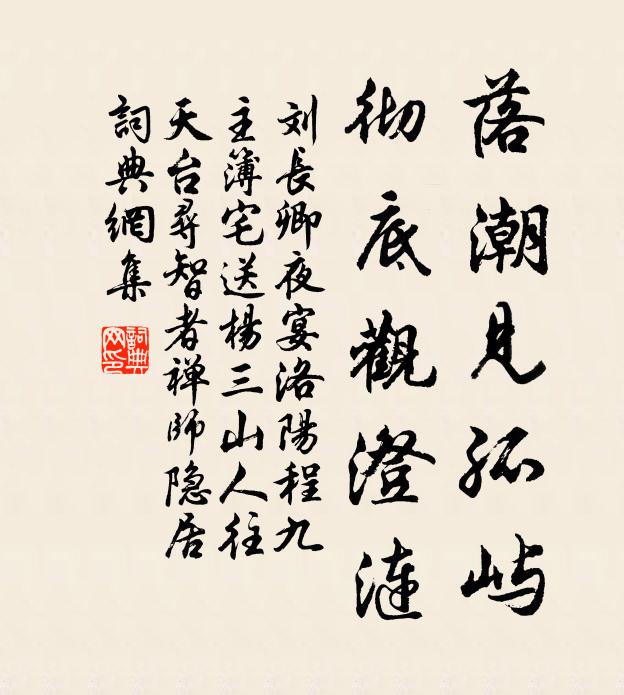 落潮見孤屿
彻底觀澄漣
刘長卿夜宴洛陽程九
主簿宅送楊三山人往
天台尋智者禅師隐居
詞典網集
詞典網印